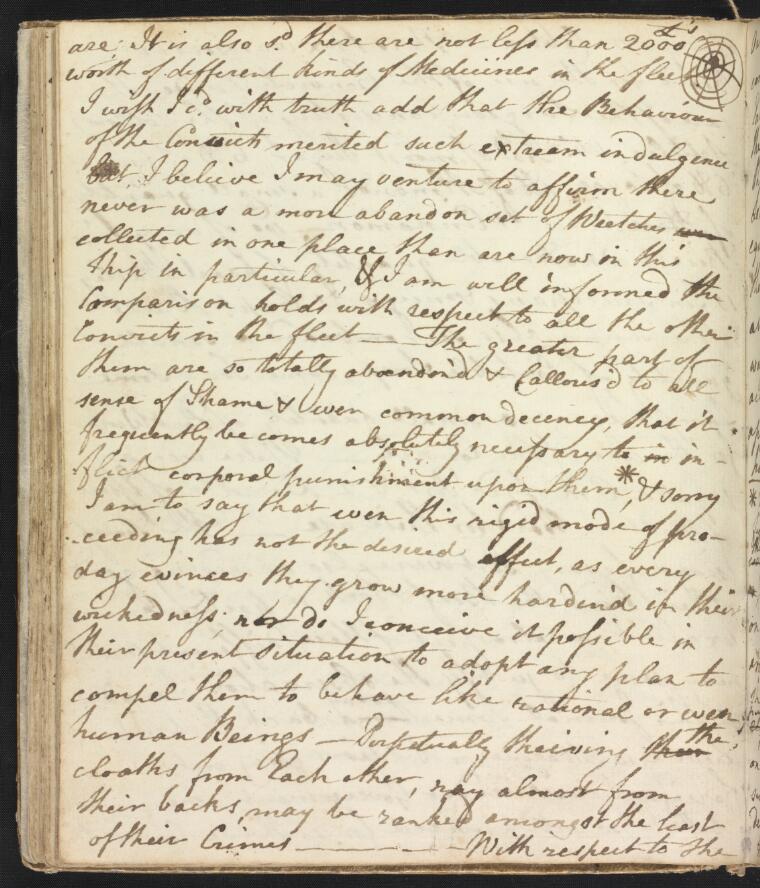 are. It is also s.d there are not less than 2000 £'s
worth of different kinds of Medecines in the fleet.
I wish I c.d with truth add that the Behaviour
of the Convicts merited such extream indulgence
But I believe I may venture to affirm there
never was a more abandon set of Wretches
collected in one place than are now in this
Ship in particular, & I am well informed the
Comparison holds with respect to all the other
Convicts in the fleet — The greater part of
them are so totally abandon'd & Callous'd to all
sense of Shame & even common decency, that it
frequently becomes absolutely necessary to in in-
flict corporal punishment upon them *, & sorry
I am to say that even this rigid mode of pro-
ceeding has not the desired effect, as every
day evinces they grow more harden'd in their
wickedness; nor do I conceive it possible in
their present situation to adopt any plan to
compel them to behave like rational or even
human Beings — Perpetually theiving their the
cloaths from Each other, nay almost from
their backs, may be ranked amongst the least
of their Crimes ———— With respect to the